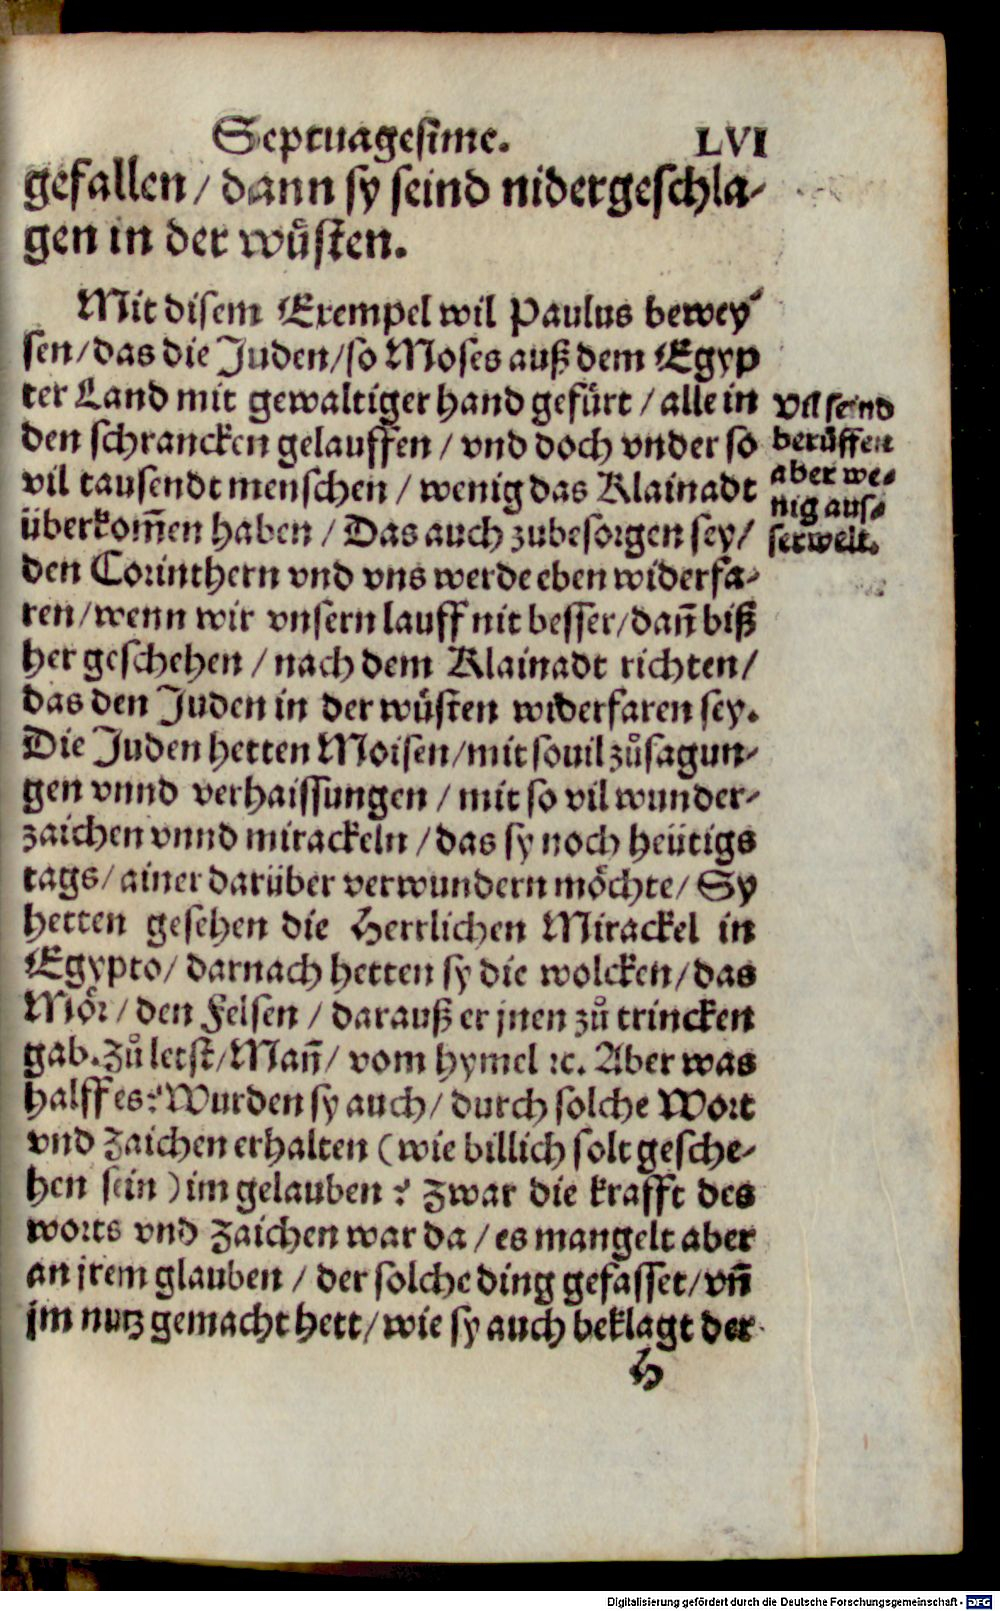 Septuagesime. LVI
gefallen / dann sy seind nidergeschla-
gen in der wuͤsten.
Mit disem Exempel wil Paulus bewey-
sen/das die Juden/so Moses auß dem Egyp
ter Land mit gewaltiger hand gefuͤrt / alle in
den schrancken gelauffen / vnd doch vnder so
vil tausendt menschen / wenig das Klainadt
überkom̃en haben / Das auch zubesorgen sey/
den Corinthern vnd vns werde eben widerfa-
ren/wenn wir vnsern lauff nit besser/dañ biß
her geschehen / nach dem Klainadt richten/
das den Juden in der wuͤsten widerfaren sey.
Die Juden hetten Moisen/mit souil zuͦsagun-
gen vnnd verhaissungen / mit so vil wunder-
zaichen vnnd mirackeln / das sy noch heütigs
tags/ ainer darüber verwundern moͤchte/ Sy
hetten gesehen die Herrlichen Mirackel in
Egypto/ darnach hetten sy die wolcken/das
Moͤr / den Felsen / darauß er jnen zuͦ trincken
gab. Zuͦ letst/Mañ/ vom hymel ꝛc. Aber was
halff es? Wurden sy auch/ durch solche Wort
vnd Zaichen erhalten (wie billich solt gesche-
hen sein) im gelauben ? Zwar die krafft des
worts vnd Zaichen war da / es mangelt aber
an jrem glauben / der solche ding gefasset/vñ
jm nutz gemacht hett/wie sy auch beklagt der
H
Vil seind
beruͤffen
aber we-
nig aus-
serwelt.
Digitalisierung gefördert durch die Deutsche Forschungsgemeinschaft - DFG